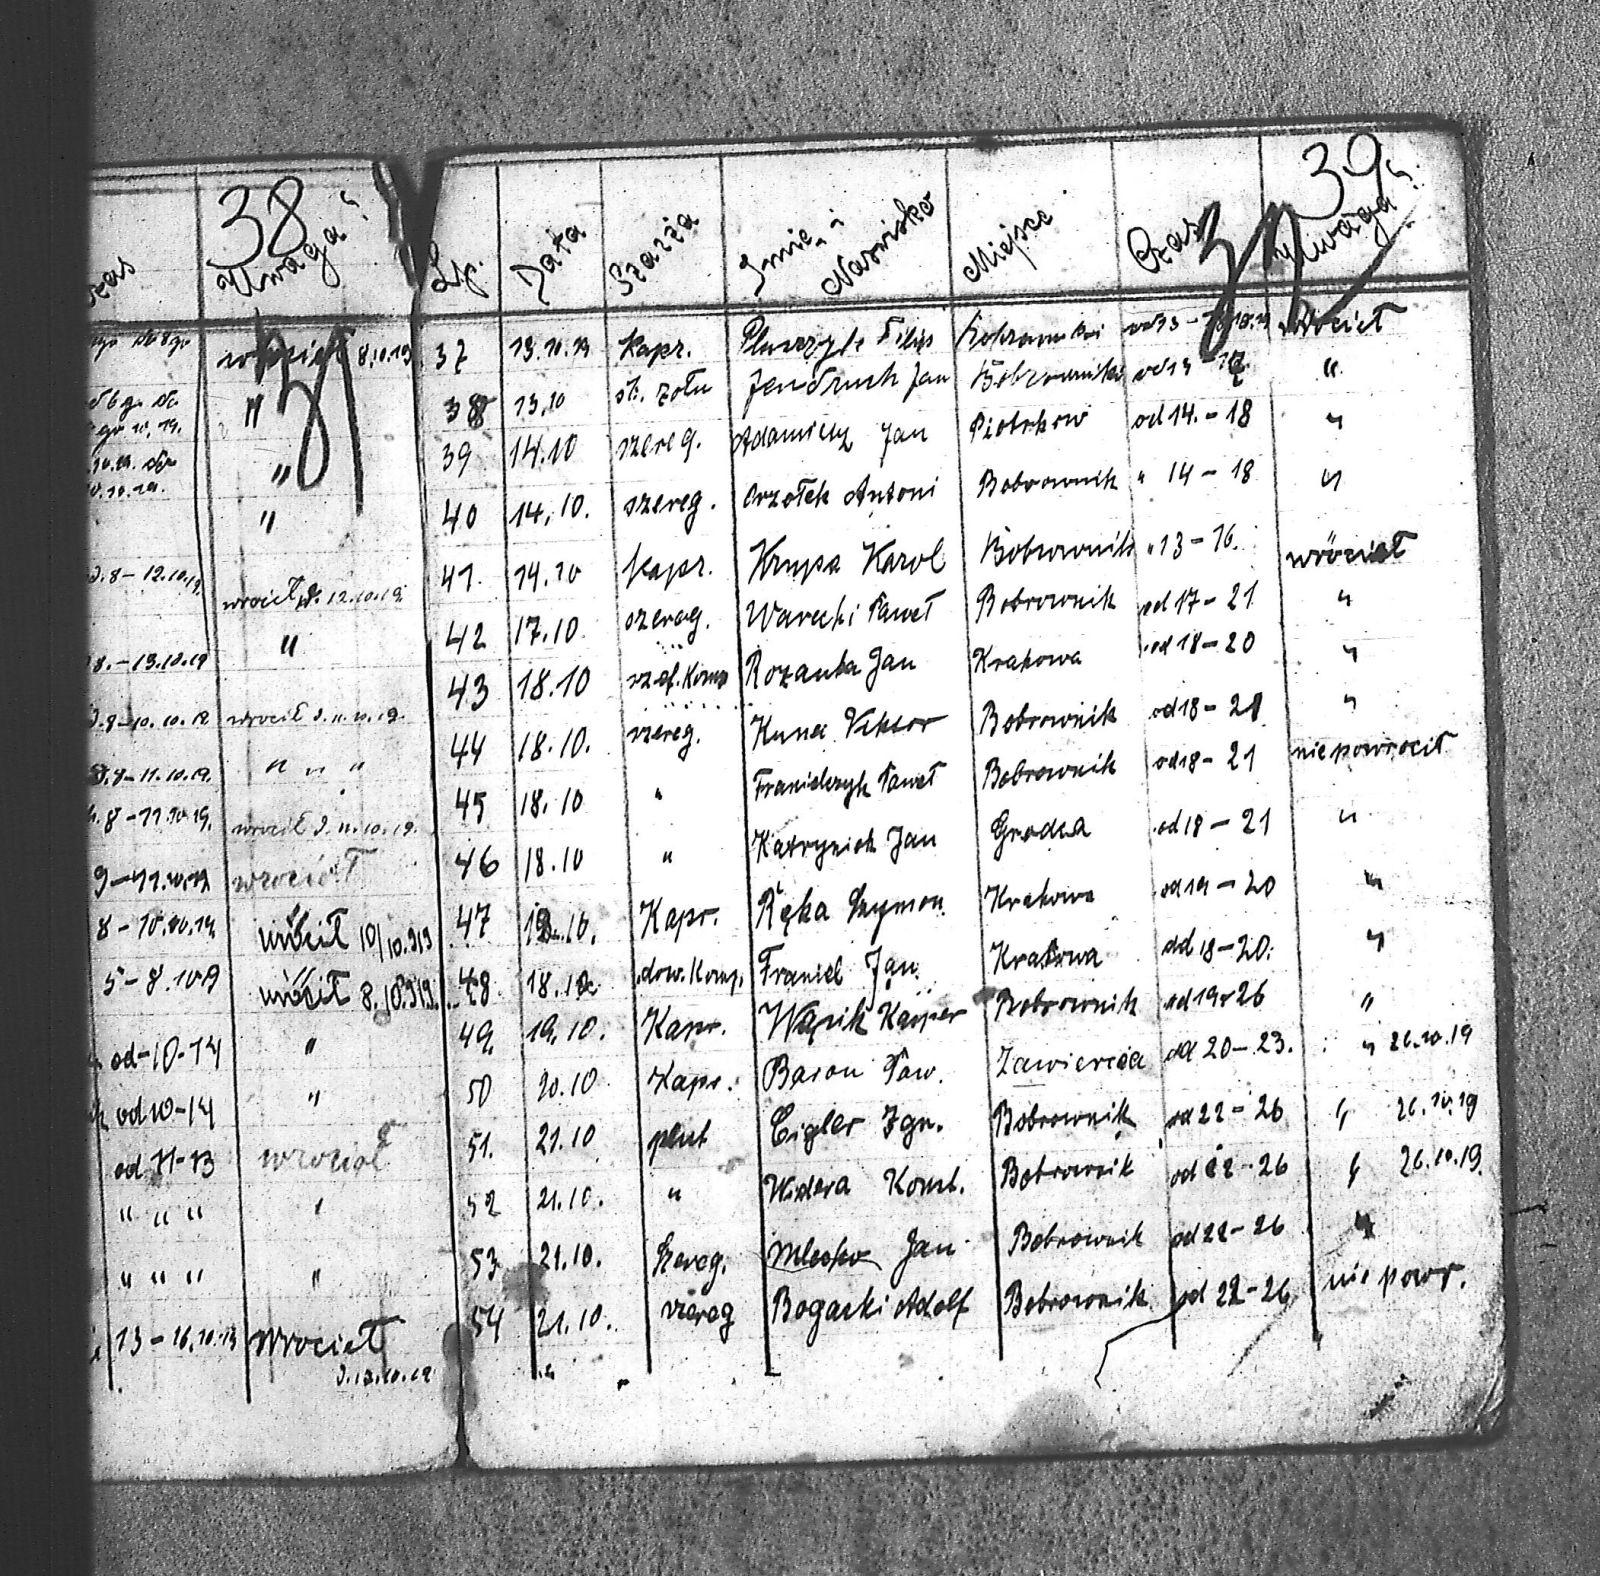 38
Uwaga
wrócił 8.10.19
"
"
"
8 - 12.10.19 wrócił d. 12.10.19
8. - 13.10.19 "
8 - 10.10.19 wrócił d. 11.10.19.
8 - 11.10.19. " " "
8 - 11.10.19. wrócił d. 11.10.19.
9 - 11.10.19 wrócił
8 - 10.10.19. wrócił 10/10.919
5 - 8.10.19 wrócił 8.10.919.
od - 10 - 14 "
od 10 - 14 "
od 11 - 13 wrócił
" " " "
" " " "
13 - 16.10.19 wrócił
39
Lp. Data Szarża Imię i Nazwisko Miejsce Czas Uwaga
37 13.10.19 Kapr. Filip wrócił
38 13.10 st. żołn Jendruch Jan Bobrowniki od 13 "
39 14.10 szereg. Adamietz Jan Piotrków od 14. - 18 "
40 14.10. szereg. Orzołek Antoni Bobrownik " 14 - 18 "
41. 14.10 kapr. Krupa Karol Bobrownik " 13 - 16. wrócił
42 17.10 szereg. Warecki Paweł Bobrownik od 17 - 21 "
43 18.10 Rozanka Jan Krakowa od 18 - 20 "
44 18.10. szereg. Kunec Viktor Bobrownik od 18 - 21 "
45 18.10 " Paweł Bobrownik od 18 - 21 nie powrócił
46 18.10 " Jan Grodca od 18 - 21 "
47 Kapr. Ręka Szymon Krakowa od 19 - 20 "
48 18.10 dow. Komp. Franiel Jan Krakowa od 18 - 20. "
49. 19.10. Kapr. Kasper Bobrownik od 19 - 26 "
50 20.10 Kapr. Baron Paw. Zawiercia od 20 - 23. " 26.10.19
51. 21.10 plut Cigler Ign. Bobrownik od 22 - 26 " 26.10.19
52 21.10. " Widera Konst. Bobrownik od 22 - 26 " 26.10.19.
53 21.10. Szereg. Mleczko Jan Bobrownik od 22 - 26 "
54 21.10. szereg Bogacki Adolf Bobrownik od 22 - 26 nie powr.